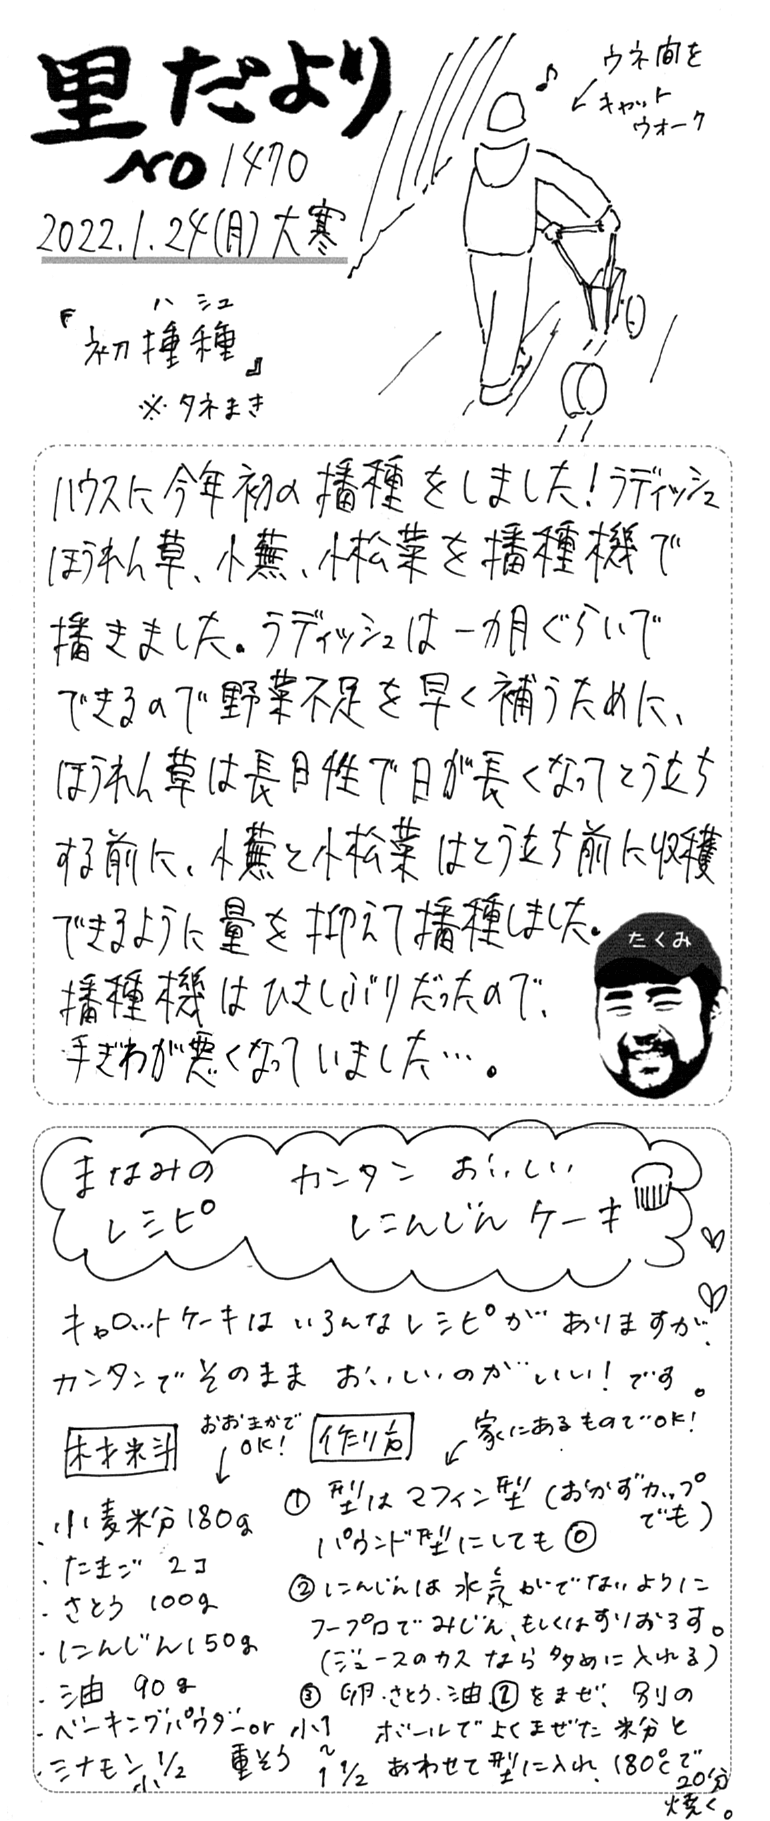 里だより
NO 1470
2022.1.24(月)大寒
ウネ間を
キャット
ウォーク
ハシュ
『初種種』
※タネまき
ハウスに今年初の播種をしました！ラディッシュ
ほうれん草、小蕪、小松菜を播種機で
播きました。ラディッシュは一カ月ぐらいで
できるので野菜不足を早く補うために、
ほうれん草は長日性で日が長くなってとう立ち
する前に、小蕪と小松菜はとう立ち前に収穫
できるように量を抑えて播種しました。
播種機はひさしぶりだったので、
手ぎわが悪くなっていました…。
たくみ
まなみの カンタン おいしい
レシピ にんじんケーキ
キャロットケーキはいろんなレシピがありますが、
カンタンでそのまま おいしいのがいい！です。
材料
おおまかで
OK!
・小麦粉180g
・たまご 2コ
・さとう 100g
・にんじん150g
・油 90g
・ベーキングパウダーor 小1
重そう 〜1 1/2
・シナモン 小1/2
作り方
家にあるものでOK!
① 型はマフィン型(おかずカップでも)
パウンド型にしても◎
② にんじんは水気がでないように
フープロでみじん、もしくはすりおろす。
(ジュースのカスなら多めに入れる)
③ 卵・さとう・油・②をまぜ、別の
ボールでよくまぜた粉と
あわせて型に入れ、180℃で
20分
焼く。